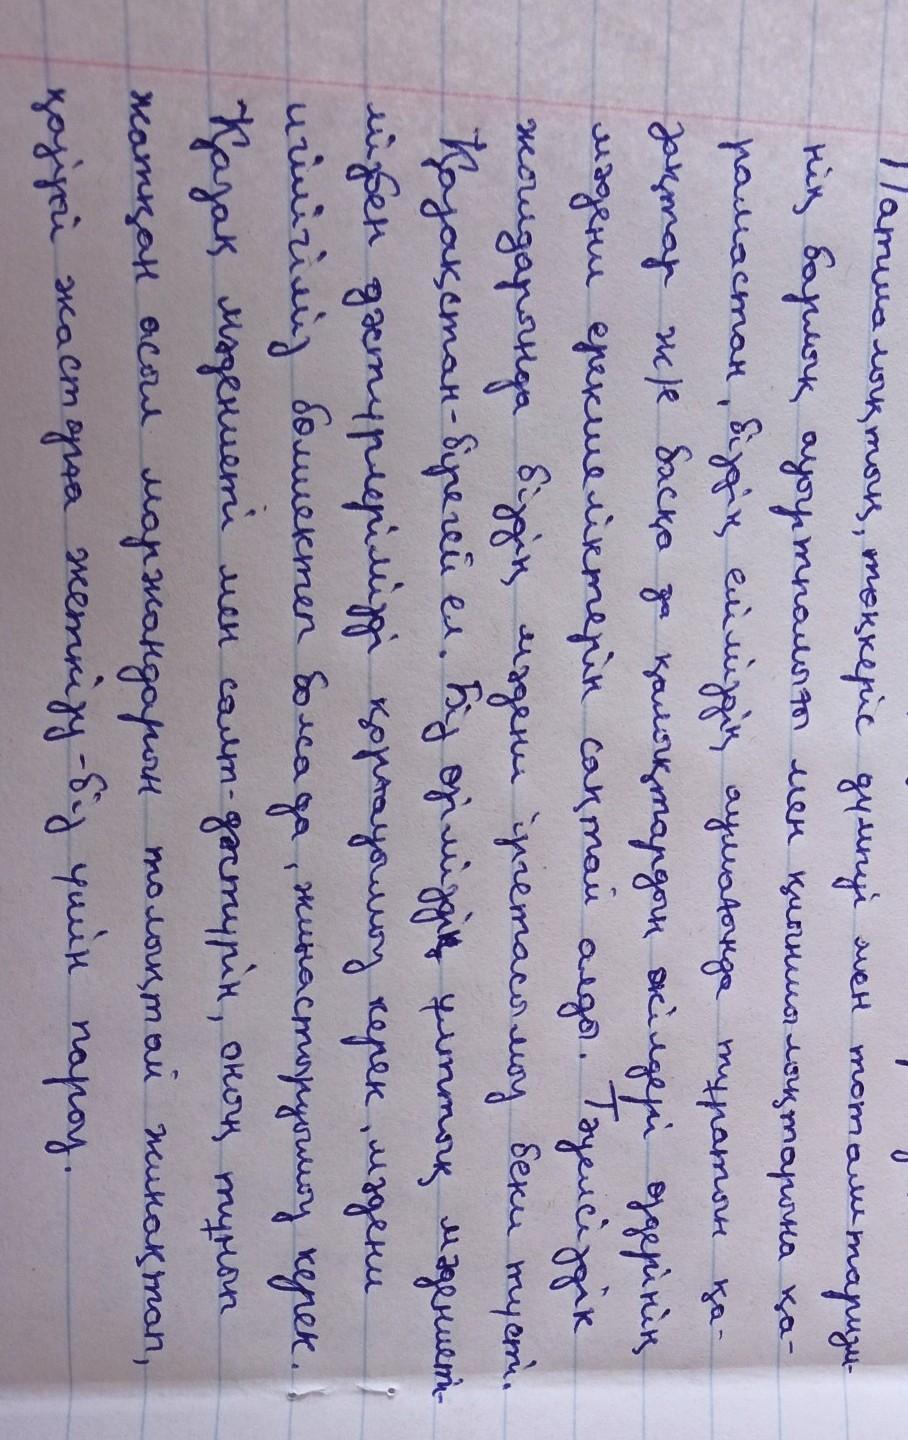 Патшалықтың, төңкеріс дүмпуі мен тотамтаризм-
нің барлық ауыртпалығы мен қиыншылықтарына қа-
рамастан, біздің еліміздің аумағында тұратын қа-
зақтар ж/е басқа да қалықтардың өкілдері өздерінің
мәдени ерекшеліктерін сақтай алды. Тәуелсіздік
жылдарында біздің мәдени іргетасымыз беки түсті.
Қазақстан-бірегей ел. Біз өзіміздің ұлттық мәдениеті-
мізбен дәстүрлерімізді қорғауымыз керек, мәдени
игілігіміз бөлшектеп болсада, жинастыруымыз керек.
Қазақ мәдениеті мен салт-дәстүрін, оның тұнып
жатқан асыл маржандарын толықтай жинақтап,
қазіргі жастарға жеткізу-біз үшін парыз.